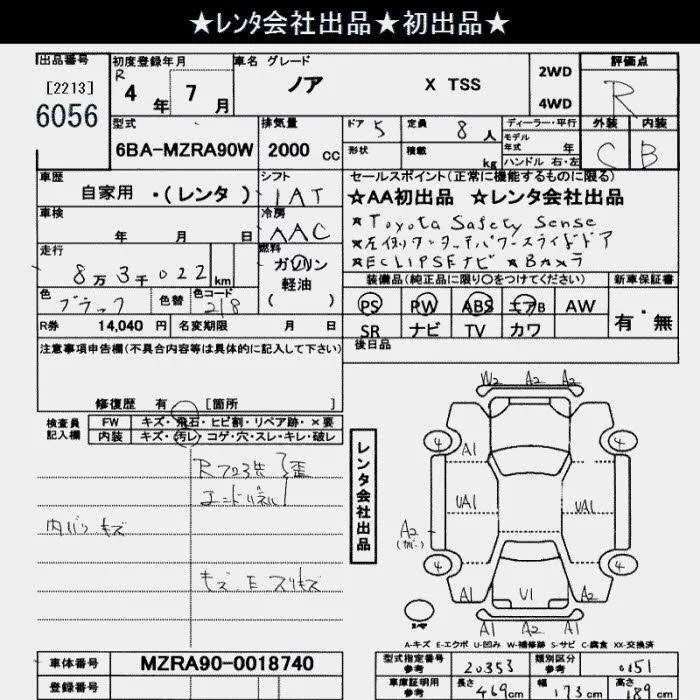 ★レンタ会社出品★初出品★
出品番号 初度登録年月 車名 グレード 評価点
[2213] R 4年 7月 ノア X TSS 2WD R
6056 4WD 外装 内装
型式 排気量 ドア 5 定員 8人 ディーラー・平行 C B
6BA-MZRA90W 2000 cc 形状 積載 kg モデル年式 年
ハンドル 右・左
車歴 シフト セールスポイント(正常に機能するものに限る)
自家用 ・(レンタ) IAT ☆AA初出品 ☆レンタ会社出品
車検 冷房 ★Toyota Safety Sense
年 月 日 AAC ★左側ワンタッチパワースライドドア
走行 燃料 ★ECLIPSEナビ ★Bカメラ
8万3千022 km ガソリン 軽油 ( )
装備品(純正品に限り○をつけてください) 新車保証書
色 ブラック 色替 色コード 218 PS PW ABS エアB AW 有・無
R券 14,040 円 名変期限 月 日 SR ナビ TV カワ
注意事項申告欄(不具合内容等は具体的に記入して下さい) 後日品
修復歴 有 [箇所
検査員記入欄 FW キズ・飛石・ヒビ割・リペア跡・×要
内装 キズ・汚レ・コゲ・穴・スレ・キレ・破レ
レンタ会社出品
Rフロア歪
エンドパネル
内バリ キズ
キズ E スリキズ
W2 A2 A2
4 A1 4
UA1 UA1
A2
(カバー)
4 A1 U1 A2 4
A1 A2 A1
A-キズ E-エクボ U-凹み W-補修跡 S-サビ C-腐食 XX-交換済
車体番号 MZRA90-0018740 型式指定番号 参考 20353 類別区分 参考 0151
登録番号 車庫証明用 参考 長さ 469cm 幅 173cm 高さ 189cm